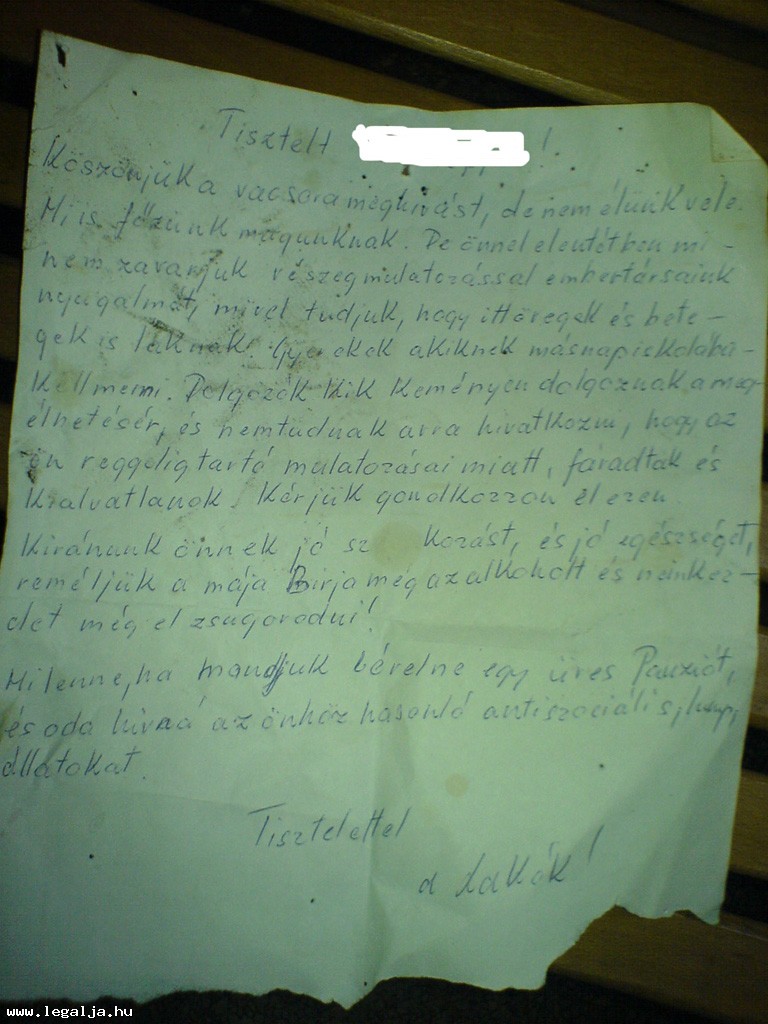 Tisztelt !
Köszönjük a vacsora meghivást, de nem élünk vele.
Mi is főzünk magunknak. De önnel elentétben mi -
nem zavarjuk részegmulatozással embertársaink
nyugalmát, mivel tudjuk, hogy itt öregek és bete -
gek is laknak. Gye ekek akiknek másnap iskolába -
kell menni. Dolgozók kik keményen dolgoznak a meg-
élhetésér, és nem tudnak arra hivatkozni, hogy az
ön reggelig tartó mulatozásai miatt, fáradtak és
kialvatlanok. Kérjük gondkozzon el ezen.
Kivánunk önnek jó sz kozást, és jó egészséget,
reméljük a mája Birja még az alkoholt és nem kez-
det még el zsugorodni!
Mi lenne, ha mondjuk bérelne egy üres Panziót,
és oda hivná az önhöz hasonló antiszociális,
állatokat.
Tisztelettel
a lakók!
www.legalja.hu